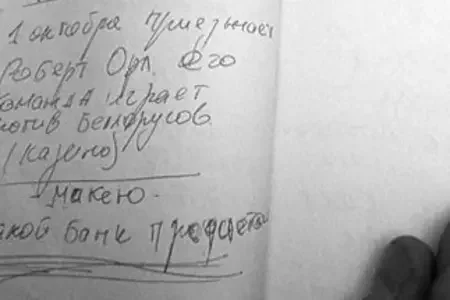 1 октября приезжает
Роберт Орл. Его
команда играет
против Белорусов
(казино)
- макею -
какой банк